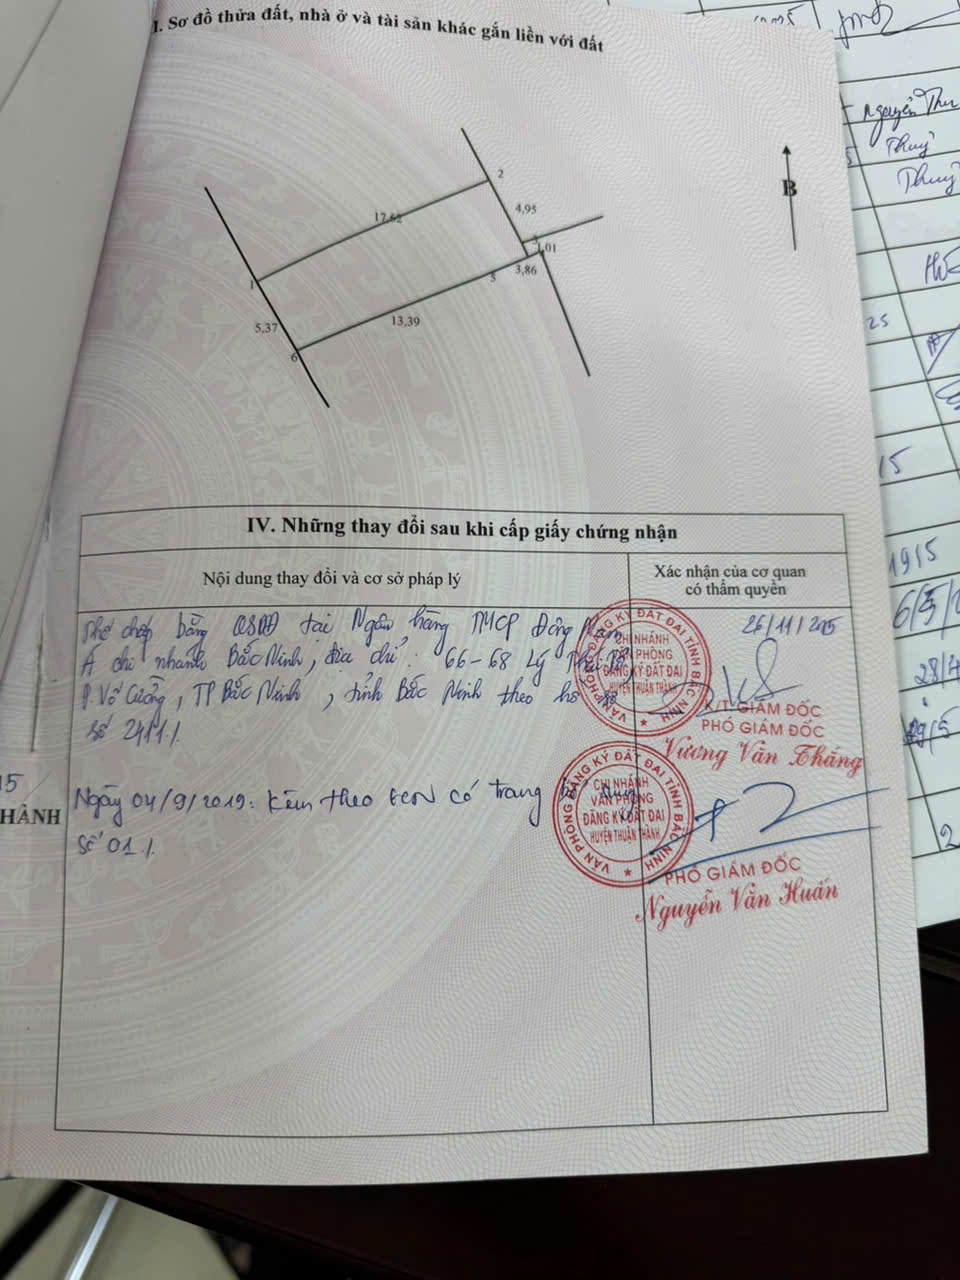 I. Sơ đồ thửa đất, nhà ở và tài sản khác gắn liền với đất
B
2
17,62
4,95
3
1,01
1
3,86
5
5,37
13,39
6
IV. Những thay đổi sau khi cấp giấy chứng nhận
Nội dung thay đổi và cơ sở pháp lý
Xác nhận của cơ quan
có thẩm quyền
Thế chấp bằng QSDĐ tại Ngân hàng TMCP Đông Nam
Á chi nhánh Bắc Ninh, địa chỉ: 66-68 Lý Thái Tổ
P. Võ Cường, TP Bắc Ninh, tỉnh Bắc Ninh theo hồ sơ
số 2411./.
26/11/2015
VĂN PHÒNG ĐĂNG KÝ ĐẤT ĐAI TỈNH BẮC NINH
CHI NHÁNH
VĂN PHÒNG
ĐĂNG KÝ ĐẤT ĐAI
HUYỆN THUẬN THÀNH
K/T GIÁM ĐỐC
PHÓ GIÁM ĐỐC
Vương Văn Thắng
Ngày 04/9/2019: Kèm theo GCN có trang bổ sung
Số 01./.
VĂN PHÒNG ĐĂNG KÝ ĐẤT ĐAI TỈNH BẮC NINH
CHI NHÁNH
VĂN PHÒNG
ĐĂNG KÝ ĐẤT ĐAI
HUYỆN THUẬN THÀNH
PHÓ GIÁM ĐỐC
Nguyễn Văn Huấn
15
HÀNH
Nguyễn Thu
Thuỷ
Thuỷ
25
15
19/5
6/5/
28/4
29/5
2